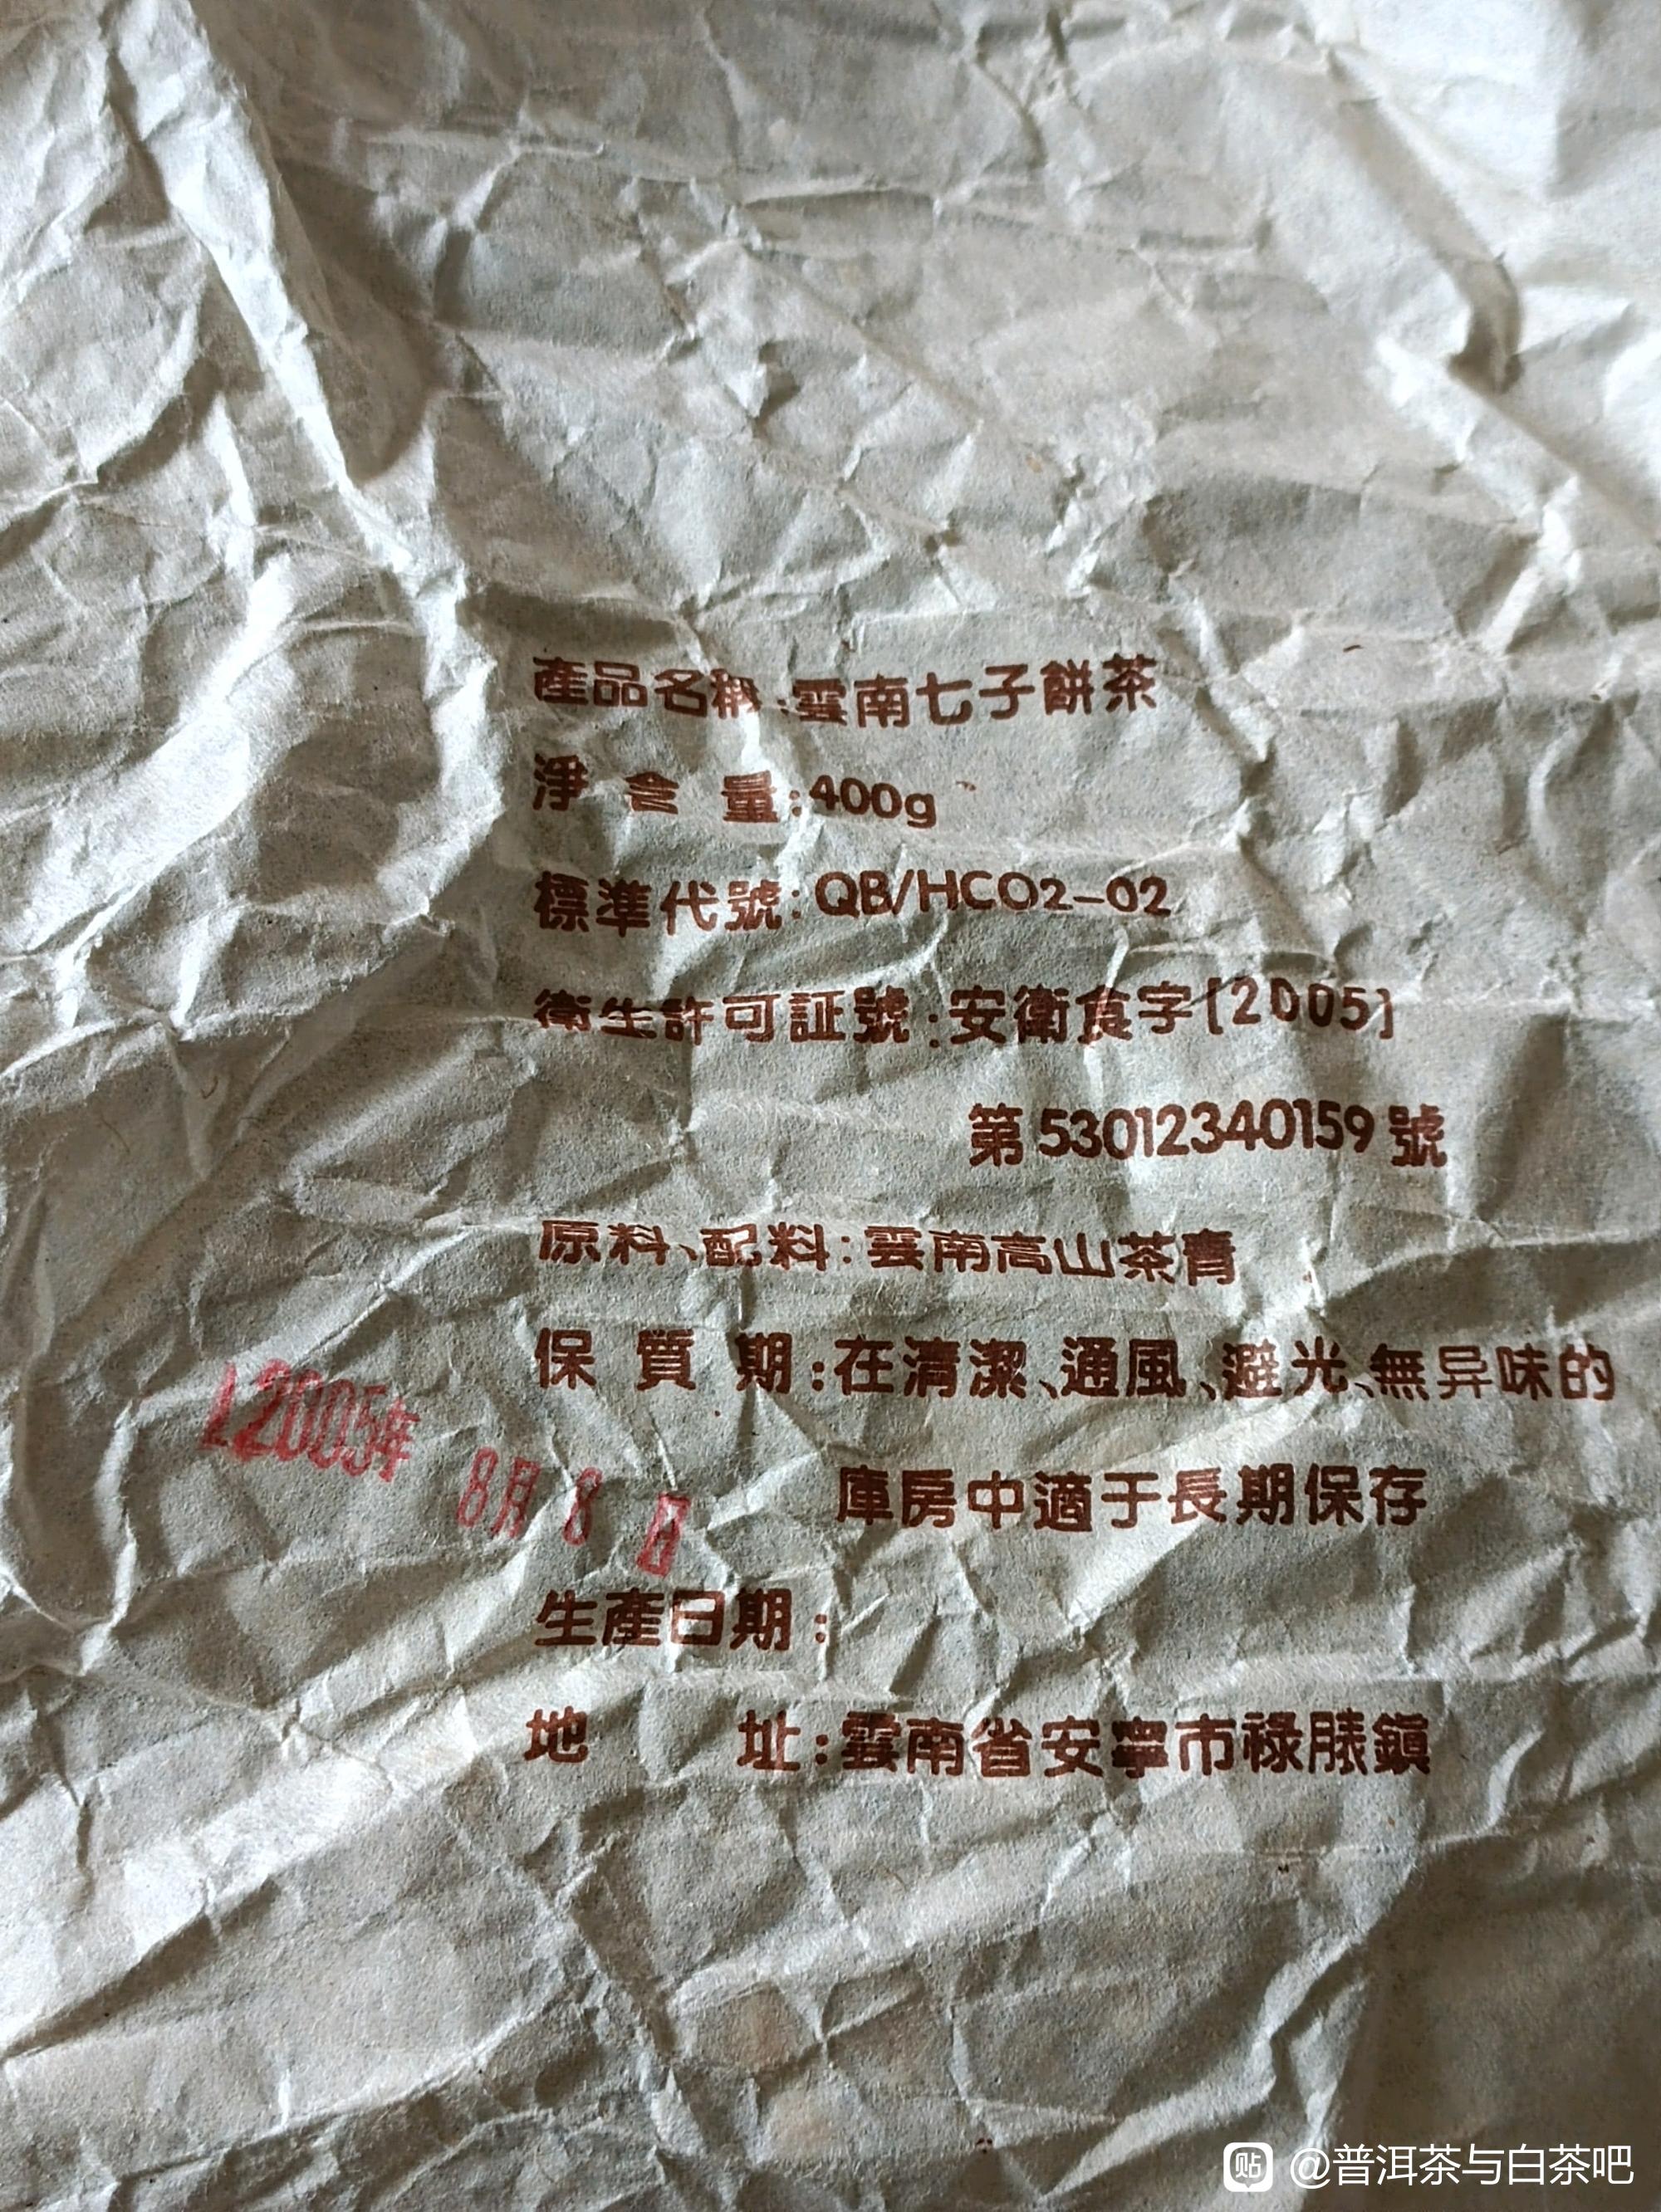 產品名稱:雲南七子餅茶
淨含量:400g
標準代號:QB/HCO2-02
衛生許可証號:安衛食字[2005]
第53012340159號
原料、配料:雲南高山茶青
保質期:在清潔、通風、避光、無异味的
庫房中適于長期保存
2005年 8月 8 日
生產日期:
地址:雲南省安寧市祿脿鎮
贴 @普洱茶与白茶吧